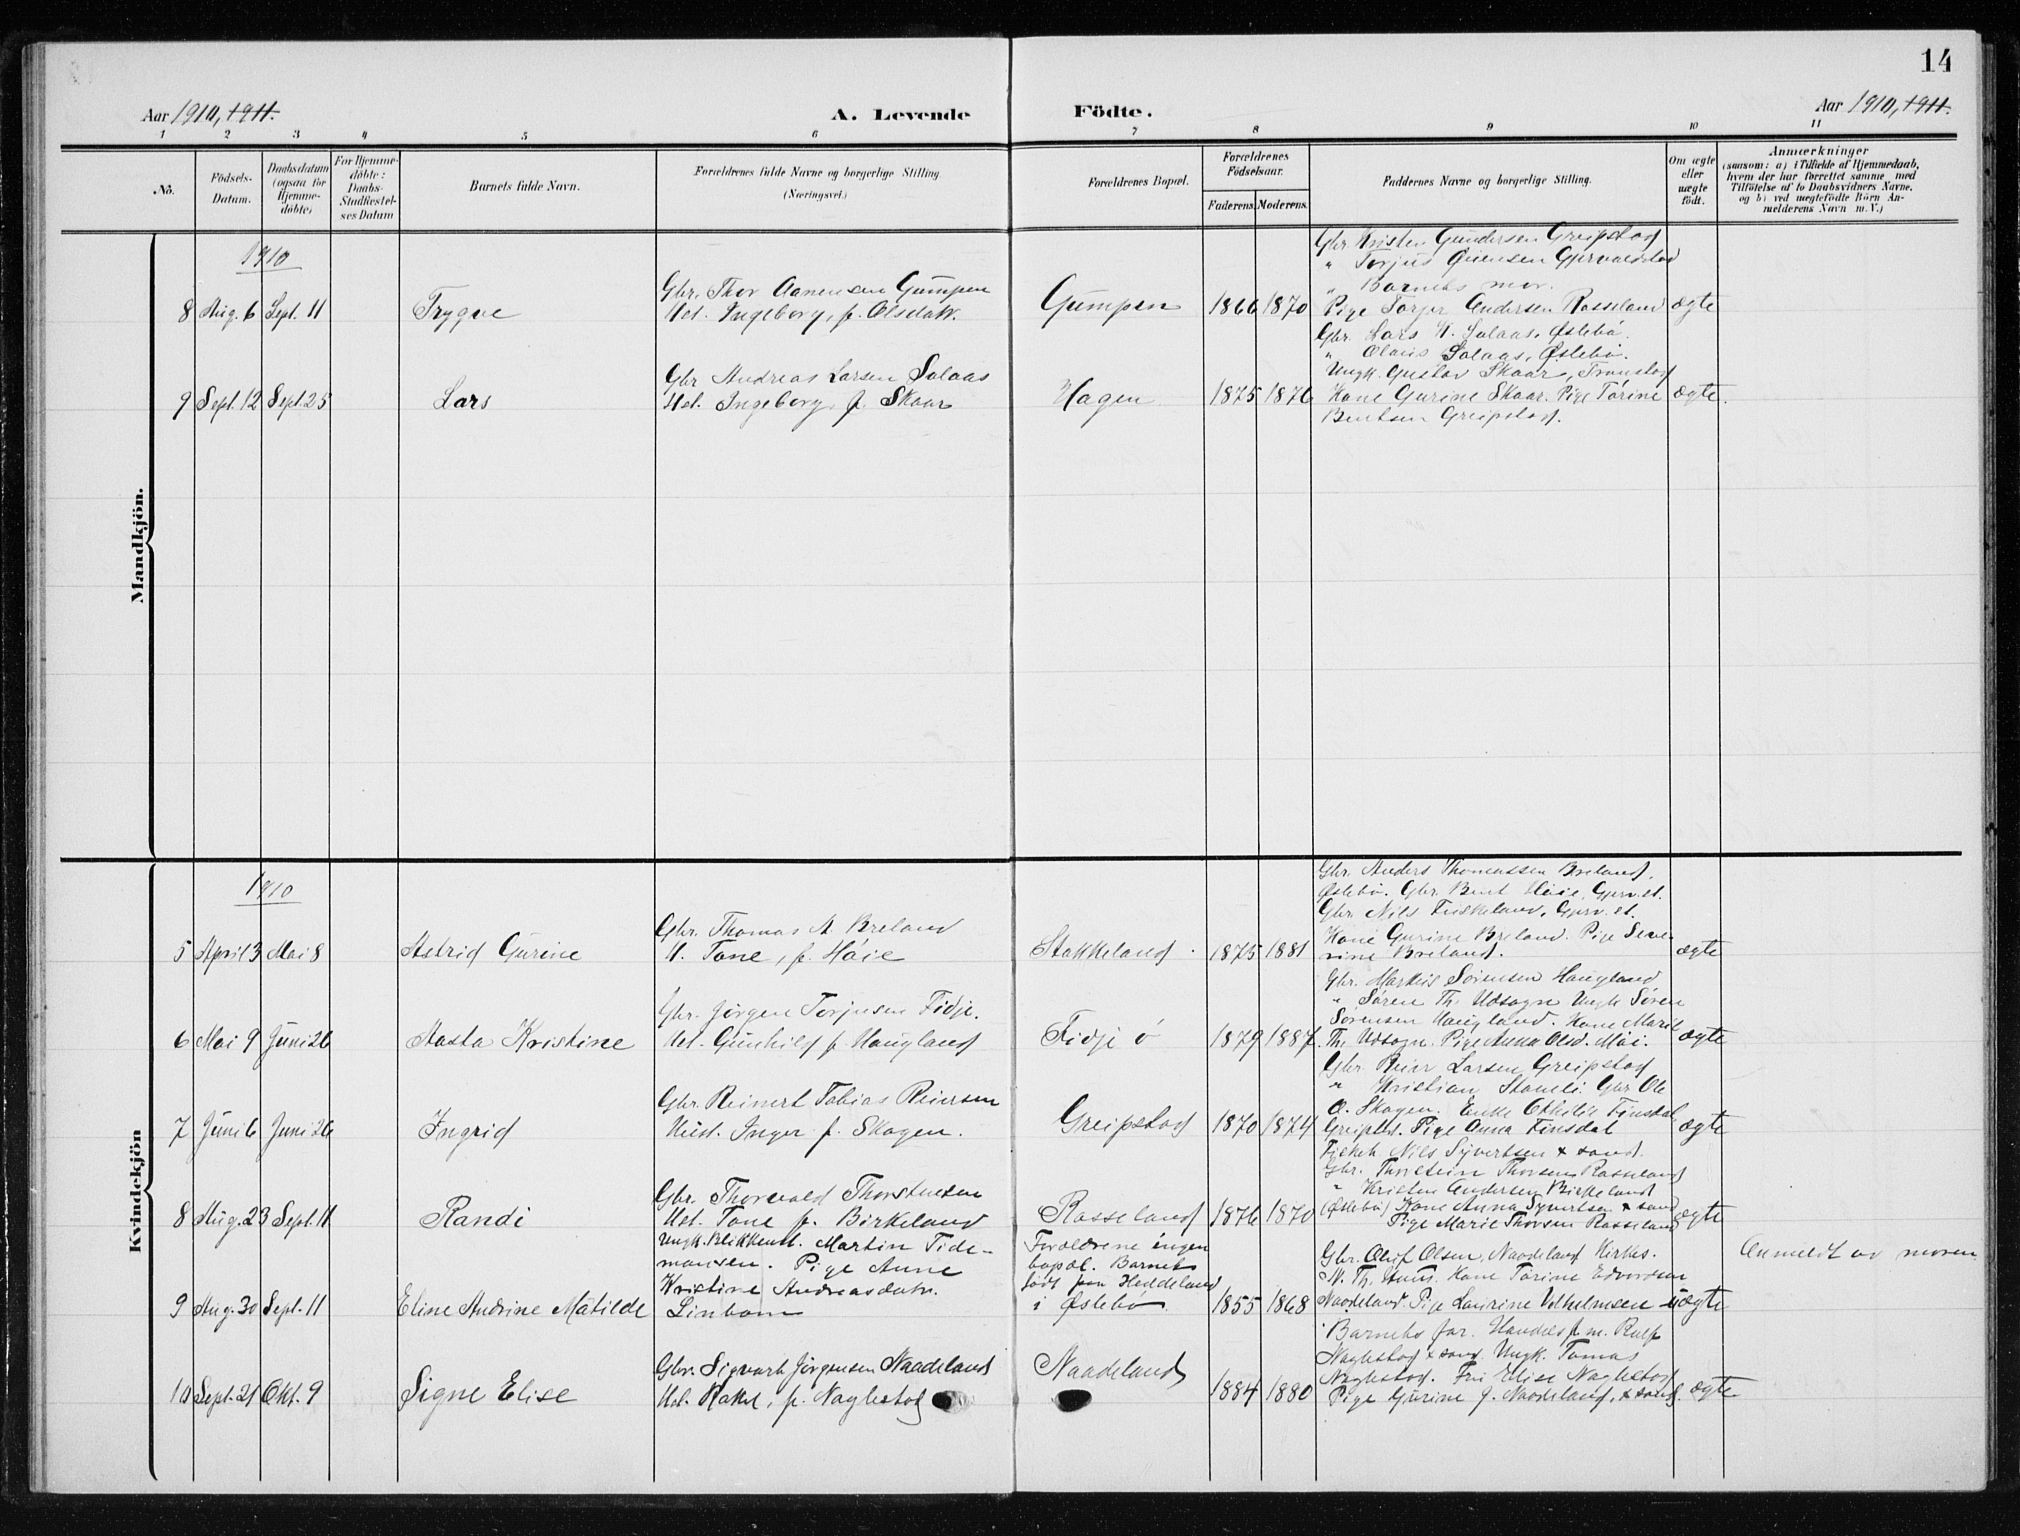 14
Aar 1910, 1911.
A. Levende Födte.
Aar 1910, 1911.
1 2 3 4 5 6 7 8 9 10 11
No.
Födsels-Datum.
Daabsdatum (ogsaa for Hjemme-döbte)
For Hjemme-döbte: Daabs-Stadfæstel-ses Datum
Barnets fulde Navn.
Forældrenes fulde Navne og borgerlige Stilling
(Næringsvei.)
Forældrenes Bopæl.
Forældrenes Födselsaar.
Faderens. Moderens.
Faddernes Navne og borgerlige Stilling.
Om ægte eller uægte födt.
Anmærkninger
(saasom: a) i Tilfælde af Hjemmedaab,
hvem der har forrettet samme, med
Tilföielse af to Daabsvidners Navne,
og b) ved uægtefödte Börn An-
melderens Navn m. V.)
Mandkjön.
1910
8 Aug. 6 Sept. 11
Trygve
Gbr. Thor Aanensen Gumpen
Hst. Ingeborg, f. Olsdatr.
Gumpen
1866 1870
Gbr. Kristen Gundersen Greipstad
" Torjus Gjervoldstad
" Barnets mor.
Pige Torjer Andersen Rosseland
ægte
9 Sept. 12 Sept. 25
Lars
Gbr. Andreas Larsen Solaas
Hst. Ingeborg f. Skaar
Hagen
1875 1876
Gbr. Lars K. Solaas, Øslebö.
" Olaus Solaas, Øslebö.
Ungk. Gustav Skaar, Tronstad
Kone Gurine Skaar. Pige Torine
Bentsen Greipstad.
ægte.
Kvindekjön
1910
5 April 3 Mai 8
Astrid Gurine
Gbr. Thomas A Breland
H. Tone, f. Höie
Stokkeland
1875 1881
Gbr. Anders Thomassen Breland,
Øslebö. Gbr. Bent Höie, Gjerv.st.
Gbr. Nils Fuskeland, Gjerv.st.
Kone Gurine Breland. Pige Seve-
rine Breland.
ægte
6 Mai 9 Juni 26
Aasta Kristine
Gbr. Jörgen Torjusen Fidje.
Hst. Gunhild f. Haugland
Fidje ö
1879 1887
Gbr. Markus Sörensen Haugland
" Sören Th. Udsogn Ungk Sören
Sörensen Haugland. Kone Marie
Th. Udsogn. Pige Anna Olsd. Moi.
ægte
7 Juni 6 Juni 26
Ingrid
Gbr. Reinert Tobias Reiersen
Hust. Inger f. Skogen.
Greipstad
1870 1874
Gbr. Reier Larsen Greipstad
" Kristian Gbr Ole
O. Skogen. Enke Othilie Finsdal,
Greipstd. Pige Anna Finsdal
ægte
8 Aug. 23 Sept. 11
Randi
Gbr. Thorvald Thorstensen
Hst. Tone f. Birkeland
Rosseland
1876 1870
Nils Syvertsen x sand.
Gbr. Thorstein Thorsen Rosseland
" Kristen Andersen Birkeland
(Øslebö) Kone Anna Syvertsen x sand
Pige Marie Thorsen Rosseland
ægte
9 Aug. 30 Sept. 11
Eline Andrine Matilde
Ungk. Blikkensl. Martin Tide-
mansen. Pige Anne
Kristine Andreasdatr.
Linbom
Forældrene ingen
bopæl. Barnets
födt paa Heddeland
i Øslebö
1855 1868
Gbr. Oluf Olsen, Naadeland Kirkes.
Kone Torine Edvardsen
Naadeland. Pige Laurine Vilhelmsen
uægte
Anmeldt av moren
10 Sept. 21 Okt. 9
Signe Elise
Gbr. Sigvart Jörgensen Naadeland
Hst. Rakel, f. Naglestad
Naadeland
1884 1880
Barnets far. Handelsf.m. Rolf
Naglestad x sand. Ungk. Tomas
Naglestad. Fru Elise Naglestad
Pige Gurine J. Naadeland, x sand.
ægte